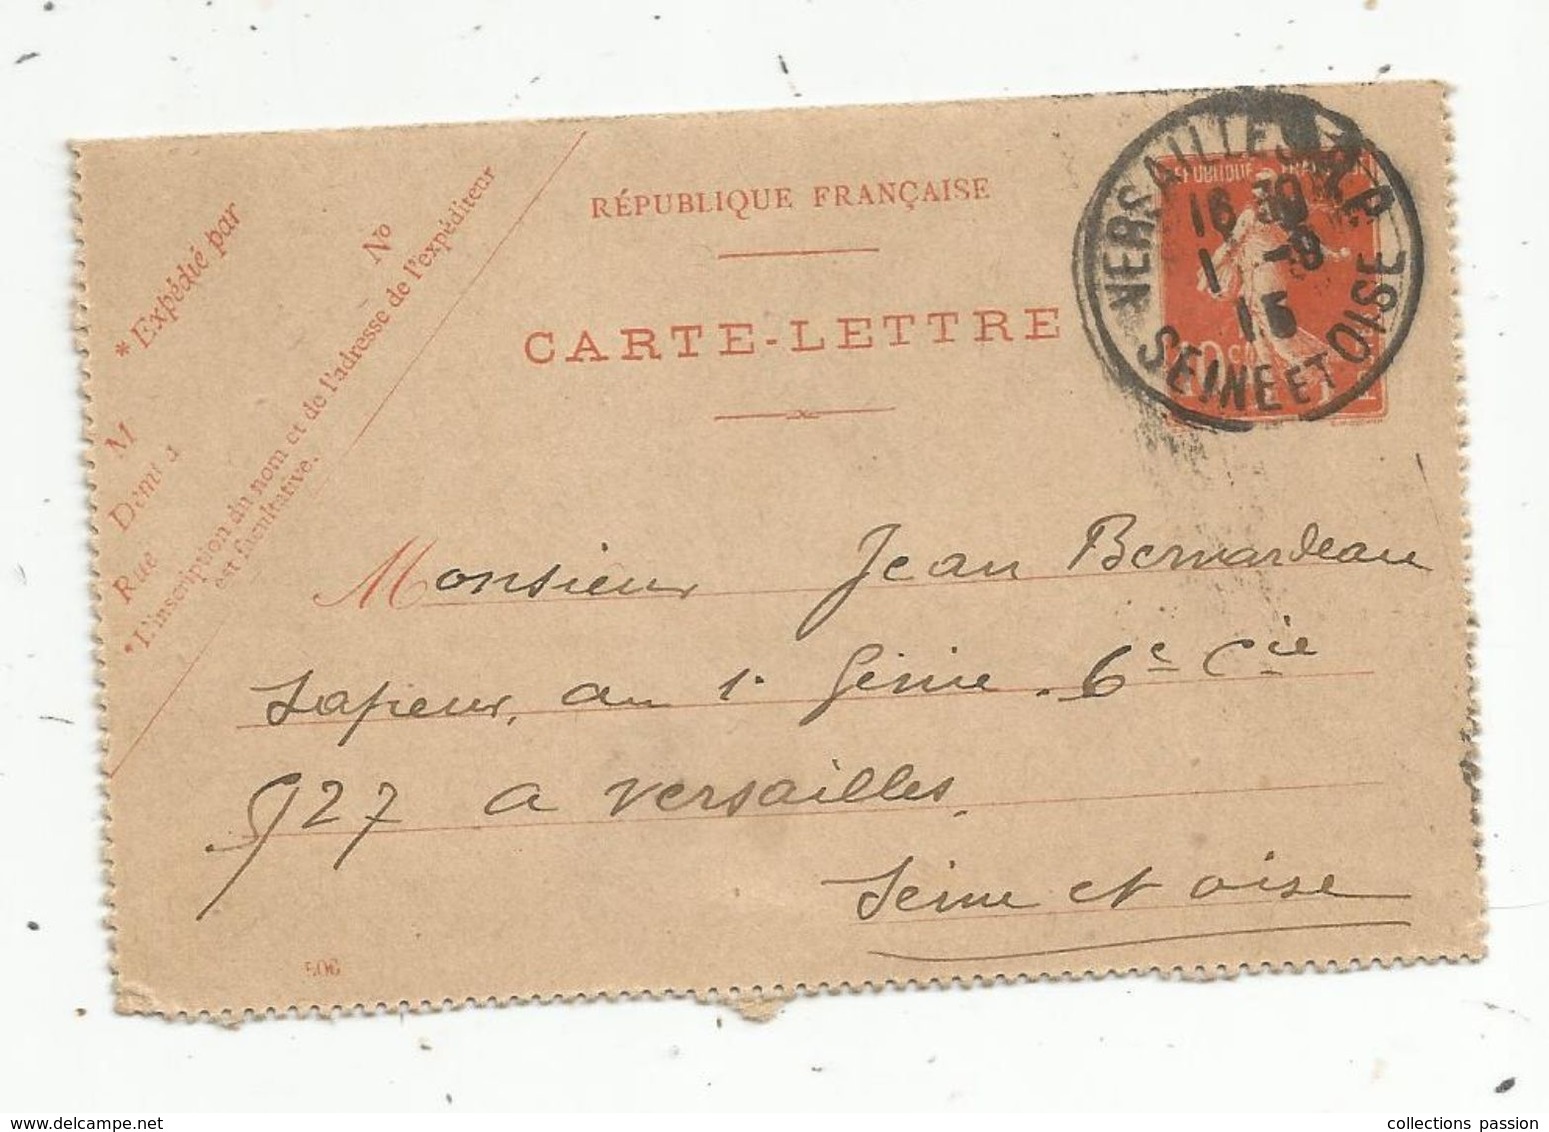 RÉPUBLIQUE FRANÇAISE
CARTE-LETTRE
* Expédié par
No
M
Rue
*L'inscription du nom et de l'adresse de l'expéditeur
est facultative.
VERSAILLES R.P
16 30
1 -9
15
SEINE ET OISE
Monsieur Jean Bernardeau
Sapeur, au 1. Génie. 6e Cie
927 a Versailles.
Seine et oise
506
delcampe.net
collections passion